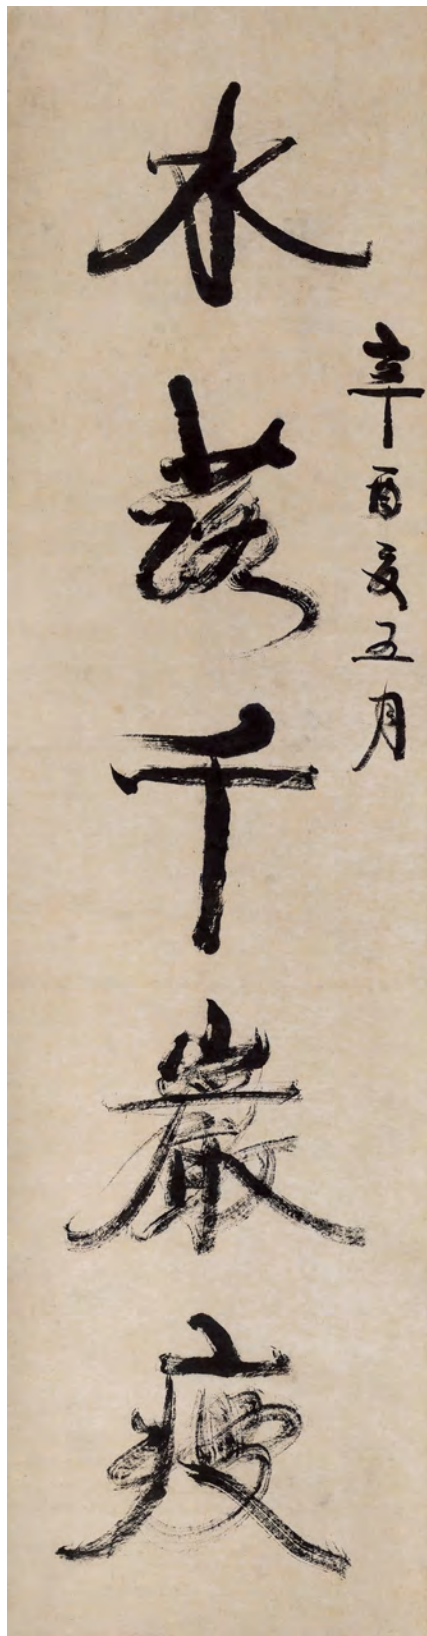 辛酉夏五月
水落千巖瘦